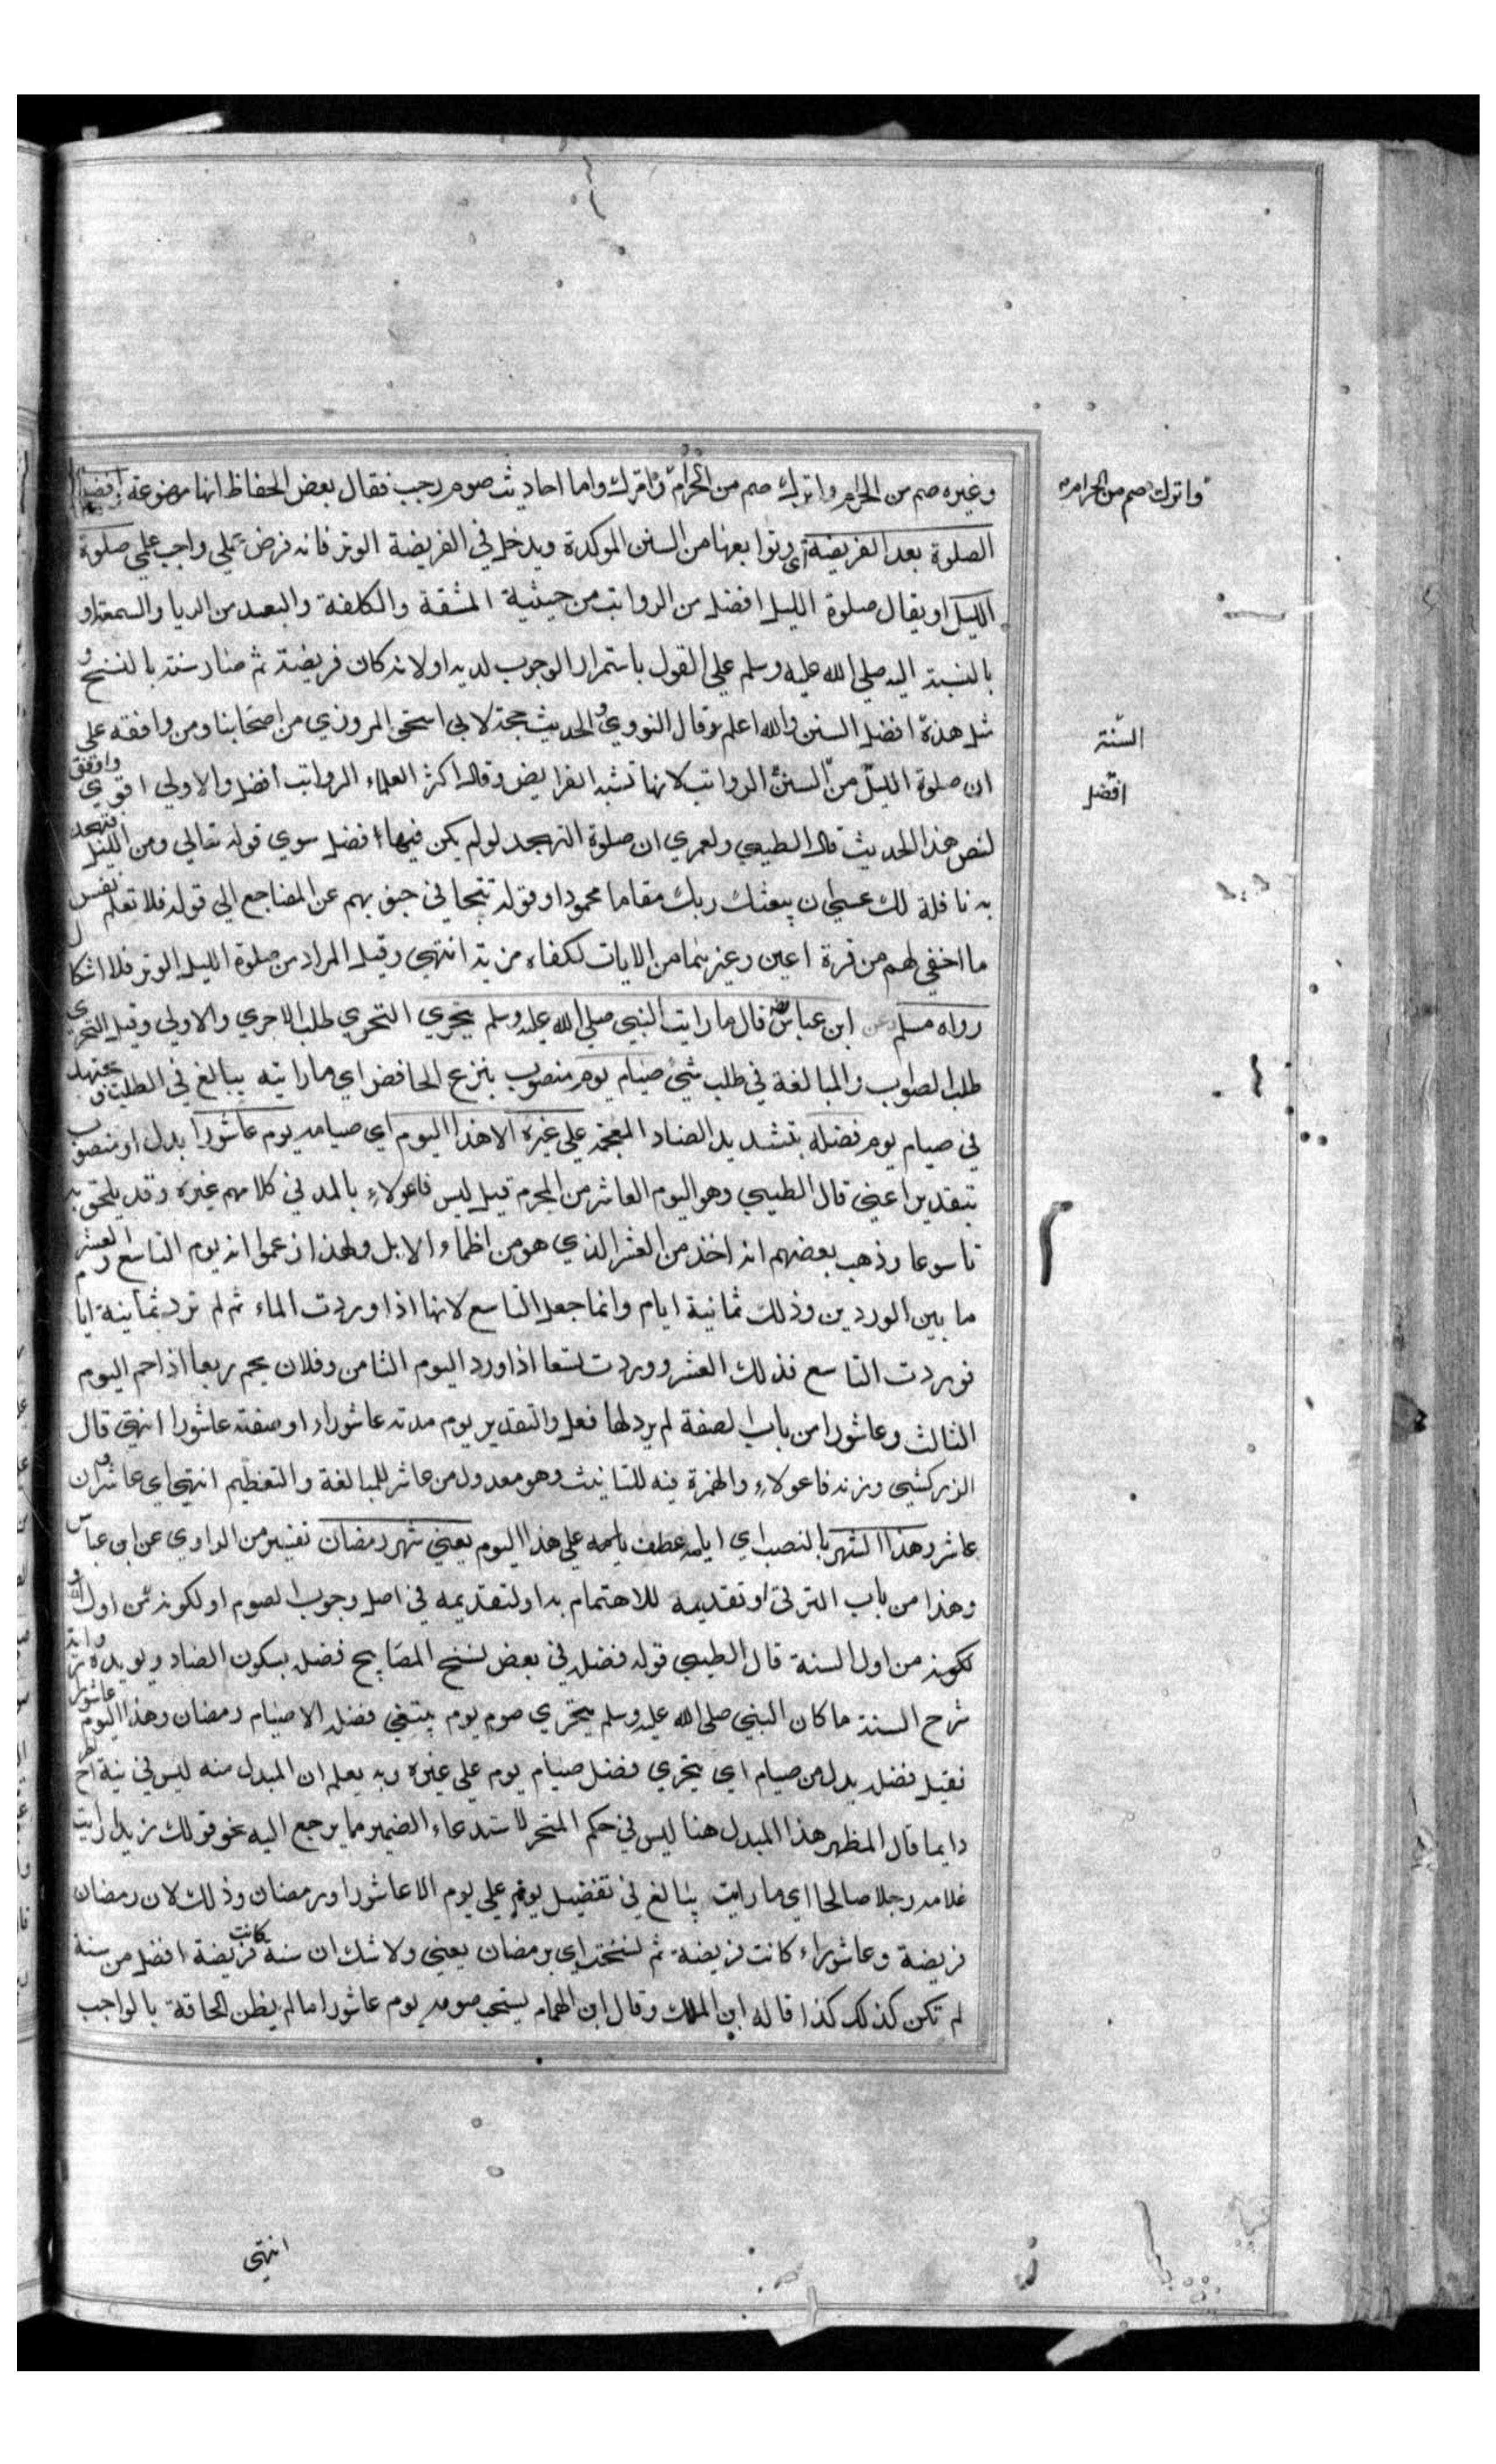 وغيره صم من الحرام واترك صم من الحرام واترك واما احاديث صوم رجب فقال بعض الحفاظ انها موضوعة وافضل
واترك صم من الحرام
الصلوة بعد الفريضة اي وتوابعها من السنن الموكدة ويدخل في الفريضة الوتر فانه فرض عملي واجب علمي صلوة
الليل او يقال صلوة الليل افضل من الرواتب من حيثية المشقة والكلفة والبعد من الريا والسمعة او
بالنسبة اليه صلى الله عليه وسلم علي القول باستمرار الوجوب لديه او لانه كان فريضة ثم صار سنة بالنسخ و
مثل هذه افضل السنن والله اعلم وقال النووي والحديث حجة لابي اسحق المروزي من اصحابنا ومن وافقه علي
السنة
ان صلوة الليل من السنن الرواتب لانها تشبه الفرايض وقال اكثر العلماء الرواتب افضل والاولي اقوي واوفق
افضل
لنص هذا الحديث قال الطيبي ولعمري ان صلوة التهجد لو لم يكن فيها افضل سوي قوله تعالي ومن الليل فتهجد
به نافلة لك عسي ان يبعثك ربك مقاما محمودا وقوله تتجافي جنوبهم عن المضاجع الي قوله فلا تعلم نفس
ما اخفي لهم من قرة اعين وغيرهما من الايات لكفاه مزية انتهي وقيل المراد من صلوة الليل الوتر فلا اشكال
رواه مسلم عن ابن عباس قال ما رايت النبي صلي الله عليه وسلم يتحري التحري طلب الاحري والاولي وقيل التحري
طلب الصواب والمبالغة في طلب شيء صيام يوم منصوب بنزع الخافض اي ما رايته يبالغ في الطلب و يجتهد
في صيام يوم فضله بتشديد الضاد المعجمة علي غيره الا هذا اليوم اي صيامه يوم عاشورا بدل او منصوب
بتقدير اعني قال الطيبي وهو اليوم العاشر من المحرم قيل ليس فاعولاء بالمد في كلامهم غيره وقد يلحق به
تاسوعا وذهب بعضهم انه اخذ من العشر الذي هو من اظماء الابل ولهذا زعموا انه يوم التاسع والعشر
ما بين الوردين وذلك ثمانية ايام وانما جعل التاسع لانها اذا وردت الماء ثم لم ترد ثمانية ايا
فوردت التاسع فذلك العشر ووردت تسعا اذا ورد اليوم الثامن وفلان يحم ربعا اذا حم اليوم
الثالث وعاشورا من باب الصفة لم يرد لها فعل والتقدير يوم مدته عاشوراء او صفته عاشورا انتهي قال
الزركشي وزنه فاعولاء والهمزة فيه للتانيث وهو معدول من عاشر للمبالغة والتعظيم انتهي اي عاشر
عاشر وهذا الشهر بالنصب اي ايامه عطف علي هذا اليوم يعني شهر رمضان تفسير من الراوي عن ابن عباس
وهذا من باب الترقي او تقديمه للاهتمام به او لتقديمه في اصل وجوب الصوم او لكونه من اول
لكونه من اول السنة قال الطيبي قوله فضله في بعض نسخ المصابيح فضل بسكون الضاد ويويده رواية
شرح السنة ما كان النبي صلي الله عليه وسلم يتحري صوم يوم يبتغي فضله الا صيام رمضان وهذا اليوم عاشورا
فقيل فضله بدل من صيام اي يتحري فضل صيام يوم علي غيره وبه يعلم ان المبدل منه ليس في نية الطرح
دايما قال المظهر هذا المبدل هنا ليس في حكم المتحر لاستدعاء الضمير ما يرجع اليه نحو قولك زيد رايت
غلامه رجلا صالحا اي ما رايت يبالغ في تفضيل يوم علي يوم الا عاشورا ورمضان وذلك لان رمضان
فريضة وعاشوراء كانت فريضة ثم نسخت اي برمضان يعني ولا شك ان سنة كانت فريضة افضل من سنة
لم تكن كذلك كذا قاله ابن الملك وقال ابن الهمام يستحب صوم يوم عاشورا ما لم يظن الحاقه بالواجب
انتهي